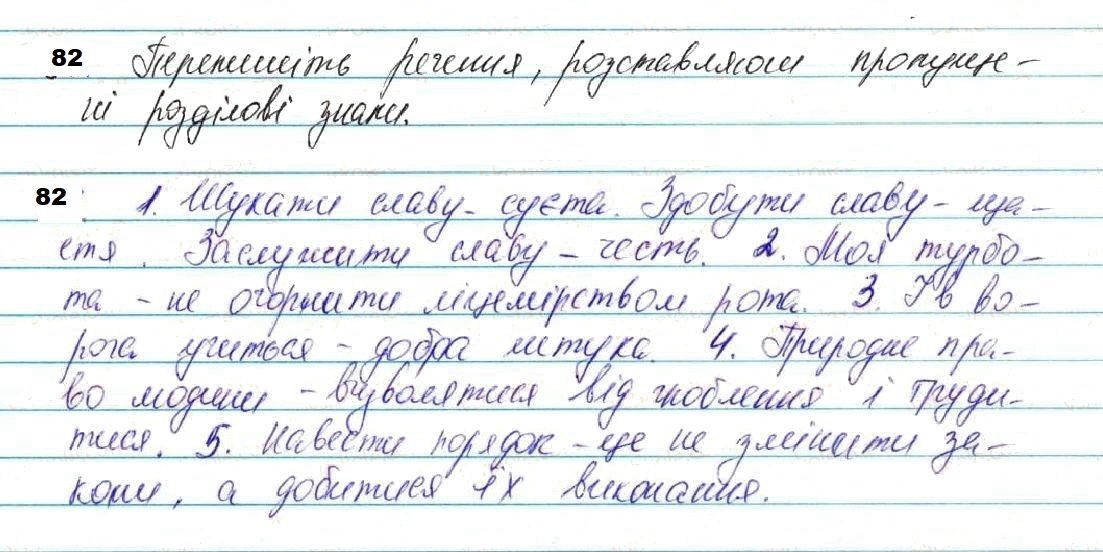 82 Перепишіть речення, розставляючи пропуще-
ні розділові знаки.
82 1. Шукати славу - суєта. Здобути славу - ща-
стя. Заслужити славу - честь. 2. Моя турбо-
та - не огорнити лицемірством рота. 3. І в во-
рога учиться - добра штука. 4. Природне пра-
во людини - визволятися від гноблення і труди-
тися. 5. Навести порядок - це не змінити за-
кони, а добитися їх виконання.